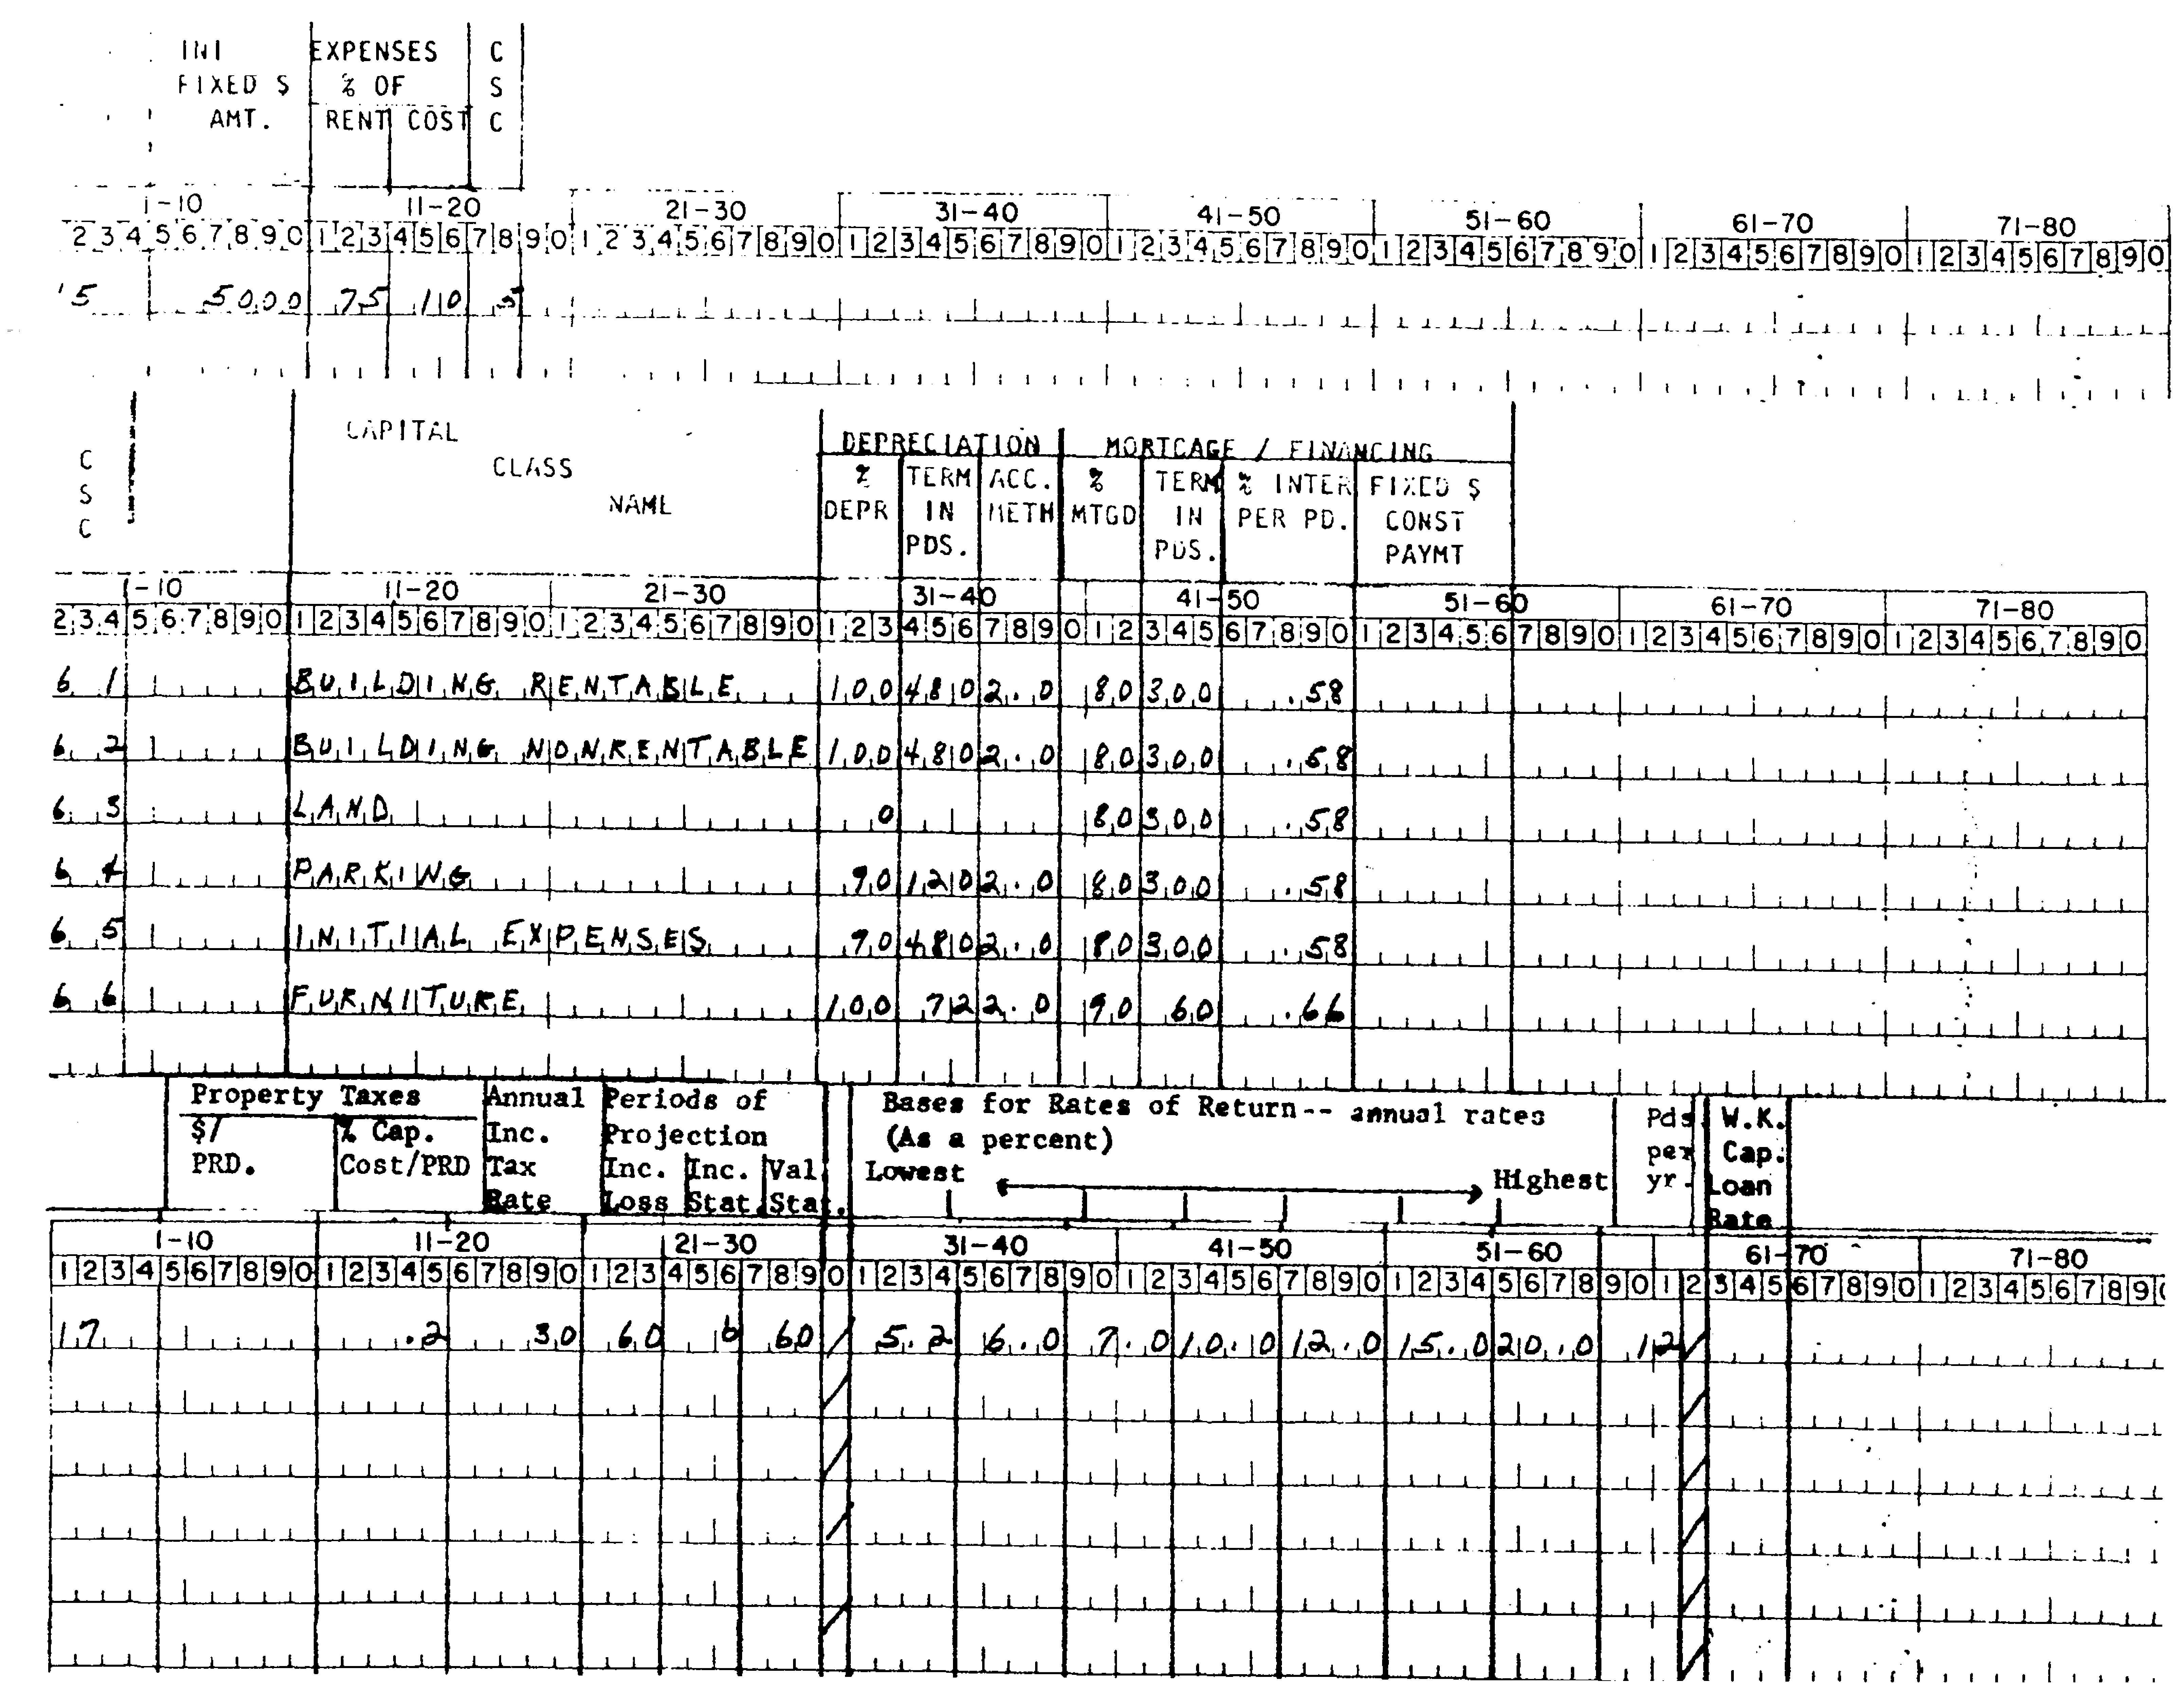 INI EXPENSES C
FIXED $ % OF S
AMT. RENT COST C
1-10 11-20 21-30 31-40 41-50 51-60 61-70 71-80
2 3 4 5 6 7 8 9 0 1 2 3 4 5 6 7 8 9 0 1 2 3 4 5 6 7 8 9 0 1 2 3 4 5 6 7 8 9 0 1 2 3 4 5 6 7 8 9 0 1 2 3 4 5 6 7 8 9 0 1 2 3 4 5 6 7 8 9 0 1 2 3 4 5 6 7 8 9 0
5 5000 75 10 5
CAPITAL
CLASS
NAME
C
S
C
DEPRECIATION MORTGAGE / FINANCING
% TERM ACC. % TERM % INTER FIXED $
DEPR IN METH MTGD IN PER PD. CONST
PDS. PDS. PAYMT
1-10 11-20 21-30 31-40 41-50 51-60 61-70 71-80
2 3 4 5 6 7 8 9 0 1 2 3 4 5 6 7 8 9 0 1 2 3 4 5 6 7 8 9 0 1 2 3 4 5 6 7 8 9 0 1 2 3 4 5 6 7 8 9 0 1 2 3 4 5 6 7 8 9 0 1 2 3 4 5 6 7 8 9 0 1 2 3 4 5 6 7 8 9 0
6 1 BUILDING RENTABLE 100 480 2.0 80 300 .58
6 2 BUILDING NONRENTABLE 100 480 2.0 80 300 .58
6 3 LAND 0 80 300 .58
6 4 PARKING 90 120 2.0 80 300 .58
6 5 INITIAL EXPENSES 90 480 2.0 80 300 .58
6 6 FURNITURE 100 72 2.0 90 60 .66
Property Taxes Annual Periods of Bases for Rates of Return-- annual rates Pds W.K.
$/ % Cap. Inc. Projection (As a percent) per Cap.
PRD. Cost/PRD Tax Inc. Inc. Val Lowest Highest yr. Loan
Rate Loss Stat. Stat. Rate
1-10 11-20 21-30 31-40 41-50 51-60 61-70 71-80
1 2 3 4 5 6 7 8 9 0 1 2 3 4 5 6 7 8 9 0 1 2 3 4 5 6 7 8 9 0 1 2 3 4 5 6 7 8 9 0 1 2 3 4 5 6 7 8 9 0 1 2 3 4 5 6 7 8 9 0 1 2 3 4 5 6 7 8 9 0 1 2 3 4 5 6 7 8 9 0
17 .2 30 60 6 60 / 5.2 6.0 7.0 10.0 12.0 15.0 20.0 12 /